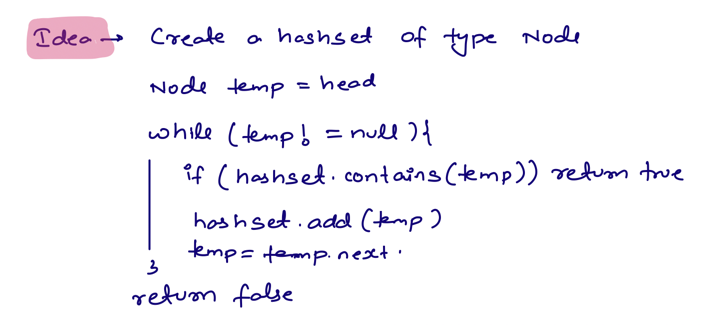 Idea → Create a hashset of type Node
Node temp = head
while (temp! = null){
if (hashset.contains(temp)) return true
hashset.add(temp)
temp = temp.next.
}
return false